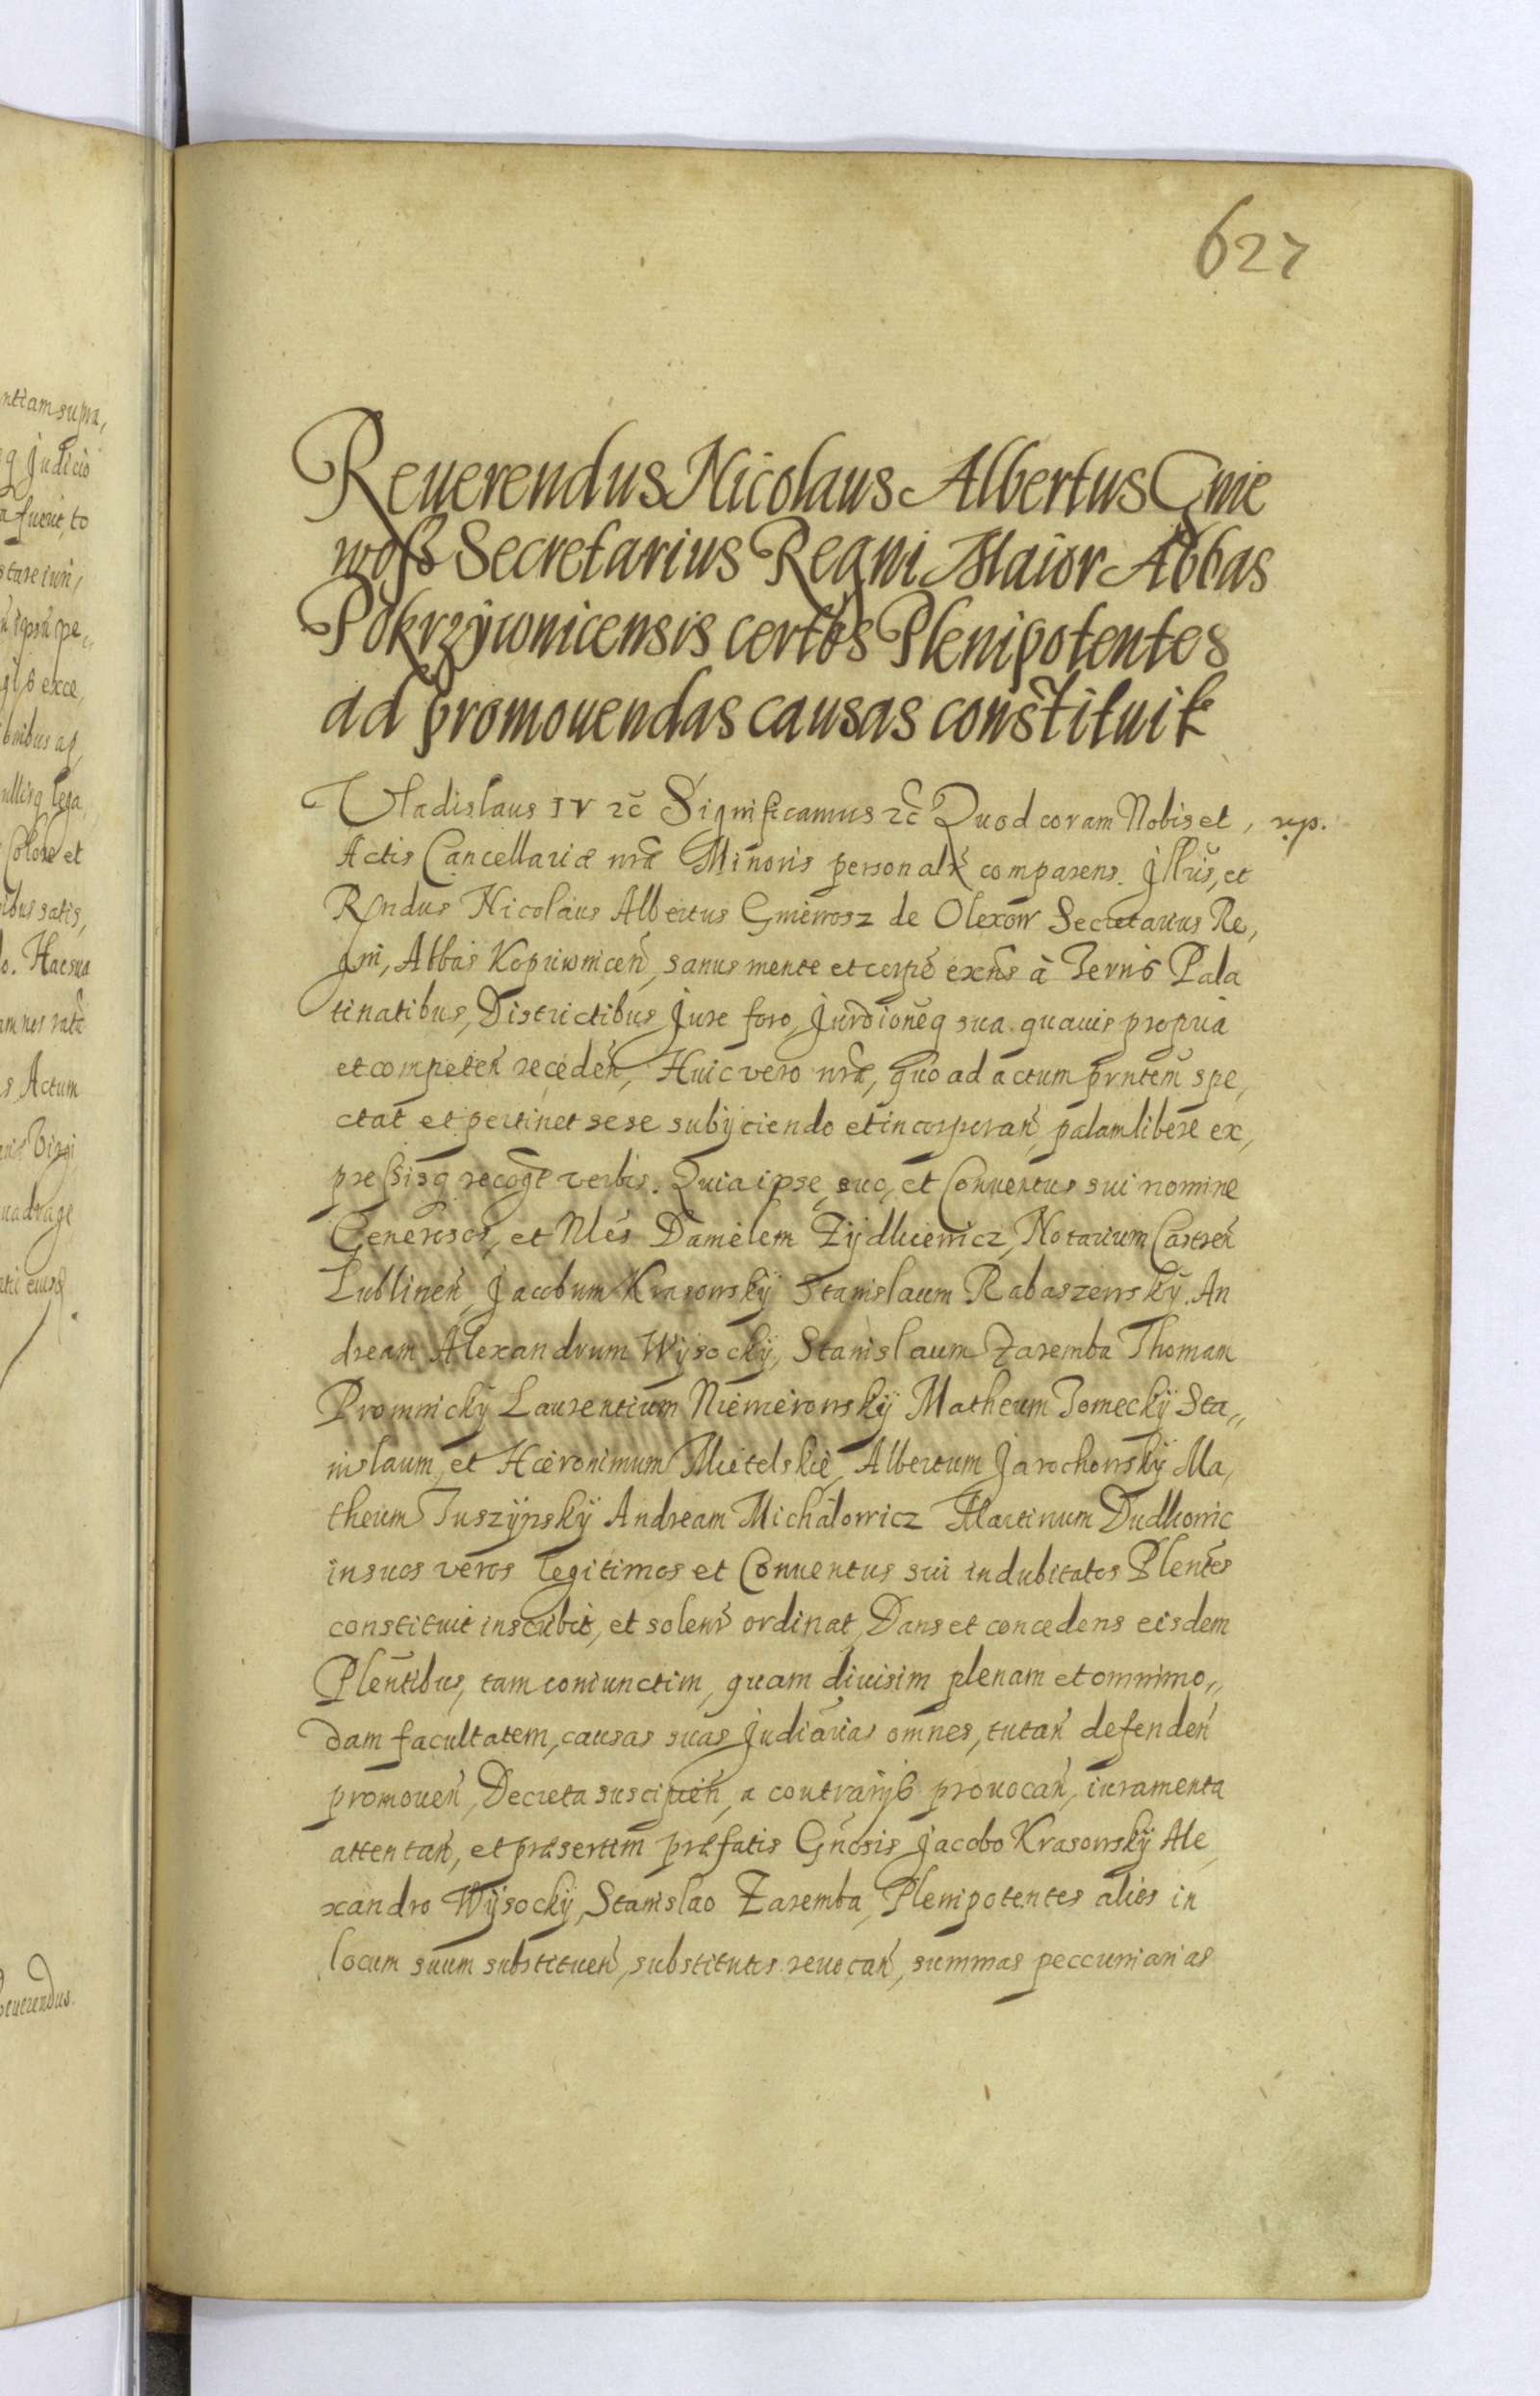 627
Reuerendus Nicolaus Albertus Gnie
woß Secretarius Regni Maior Abbas
Pokrzÿwnicensis certos Plenipotentes
ad promouendas causas constituit
Vladislaus IV &c̃ Significamus &c̃ Quod coram Nobis et, rep.
Actis Cancellariæ nrã Minoris personalr̃ comparens. Jllrũs, et
Rñdus Nicolaus Albertus Gniewosz de Olexow Secretarius Re,
gni, Abbas Kopriwnicen̄, sanus mente et corpẽ exñs à Terris Pala
tinatibus, Districtibus Jure foro, Jurdionẽq sua quauis propria
et competen̄ receden̄, Huic vero nrã, quo ad actum prntẽm spe,
ctat et pertinet sese subÿciendo et incorporan̄, palam libere ex,
preßisq recogt̃ verbis. Quia ipse suo, et Conuentus sui nomine
Generosos, et Nlẽs Danielem Zÿdkiewicz, Notarium Castren̄
Lublinen̄, Jacobum Krasowskÿ Stanislaum Rabaszewskÿ. An
dream Alexandrum Wÿsockÿ, Stanislaum Zaremba Thomam
Promnickÿ Laurentium Niemirowskÿ Matheum Tomeckÿ Sta,,
nislaum, et Hieronimum Mietelskie, Albertum Jarochowskÿ Ma,
theum Tuszÿnskÿ Andream Michałowicz Martinum Dudkowic
in suos veros legitimos et Conuentus sui indubitatos Plentẽs
constituit inscribit, et solenr̃ ordinat, Dans et concedens eisdem
Plentĩbus, tam coniunctim, quam diuisim plenam et omnimo,,
dam facultatem, causas suas Judiarias omnes, tutan̄ defenden̄
promouen̄, Decreta suscipien̄, a contrarÿs prouocan̄, iuramenta
attentan̄, et præsertim præfatis Gñosis Jacobo Krasowskÿ Ale,
xandro Wÿsockÿ, Stanislao Zaremba, Plenipotentes alios in
locum suum substituen̄, substitutos reuocan̄, summas peccuniarias